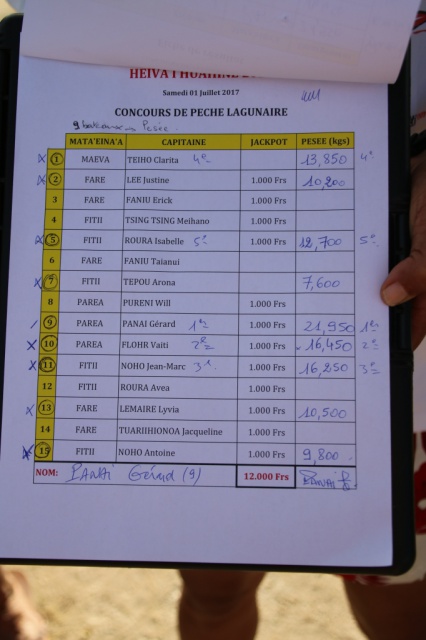 HEIVA I HUAHINE
Samedi 01 Juillet 2017
CONCOURS DE PECHE LAGUNAIRE
9 bateaux Pesée
MATA'EINA'A CAPITAINE JACKPOT PESEE (kgs)
X 1 MAEVA TEIHO Clarita 4e 13,850 4e
X 2 FARE LEE Justine 1.000 Frs 10,200
3 FARE FANIU Erick 1.000 Frs
4 FITII TSING TSING Meihano 1.000 Frs
X 5 FITII ROURA Isabelle 5e 1.000 Frs 12,700 5e
6 FARE FANIU Taianui
X 7 FITII TEPOU Arona 7,600
8 PAREA PURENI Will 1.000 Frs
/ 9 PAREA PANAI Gérard 1er 1.000 Frs 21,950 1er
X 10 PAREA FLOHR Vaiti 2e 1.000 Frs 16,450 2e
X 11 FITII NOHO Jean-Marc 3e 1.000 Frs 16,250 3e
12 FITII ROURA Avea 1.000 Frs
X 13 FARE LEMAIRE Lyvia 1.000 Frs 10,500
14 FARE TUARIIHIONOA Jacqueline 1.000 Frs
X 15 FITII NOHO Antoine 1.000 Frs 9,800
NOM: PANAI Gérard (9) 12.000 Frs